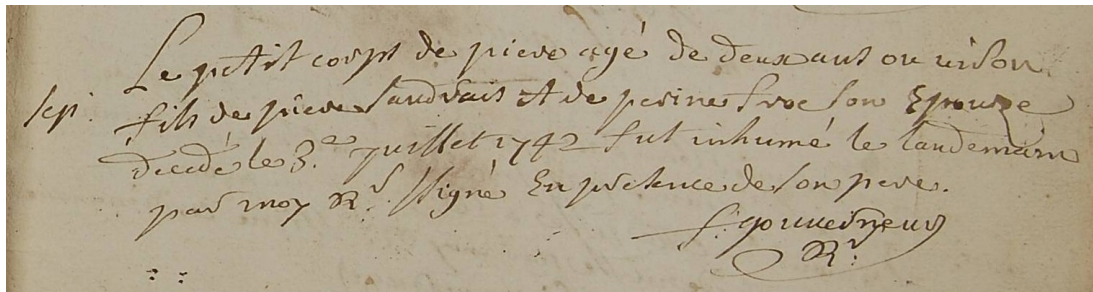 Le petit corps de piere agé de deux ans ou viron
sep. fils de piere Landrais et de perine froc son Epouze
décédé le 3.e juillet 1742 fut inhumé le landemain
par moy Rr. ssigné En présence de son pere.
f. gouverneur
Rr.